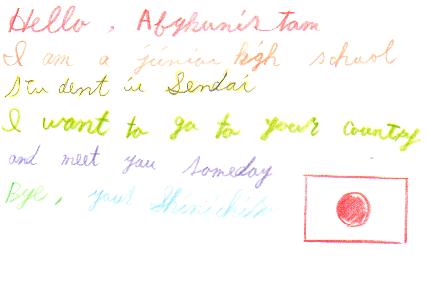 Hello, Afghanistan
I am a junior high school
student in Sendai
I want to go to your country
and meet you someday
Bye, your Shinichiro